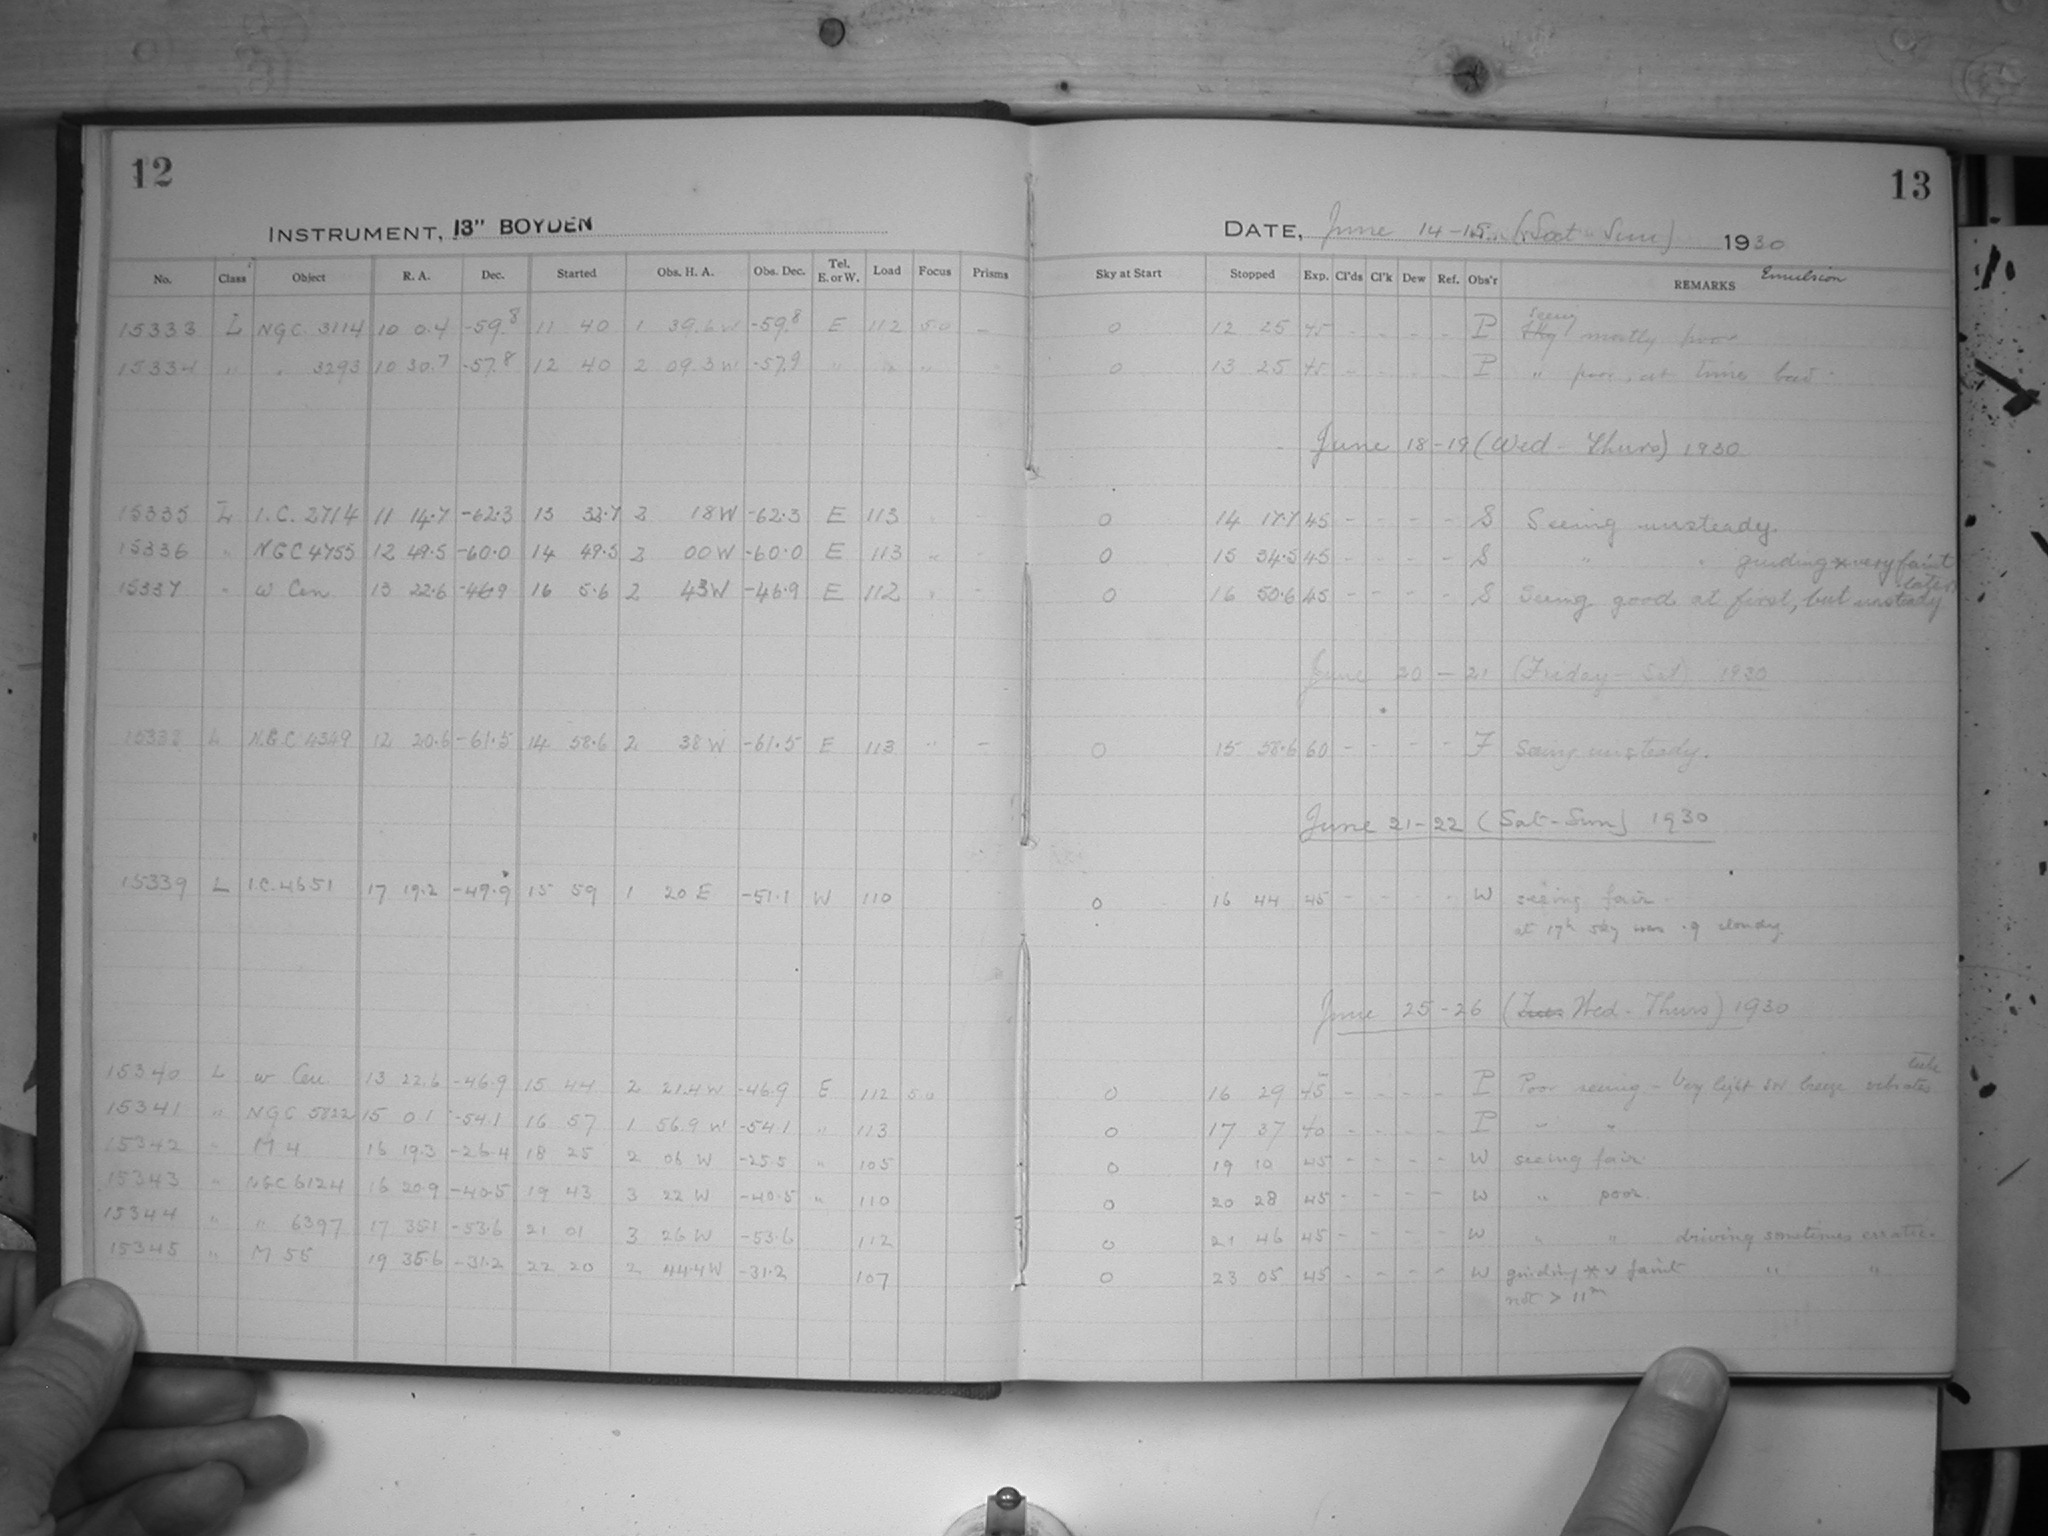 12
13
INSTRUMENT, 13" BOYDEN
DATE, June 14-15 (Sat - Sun) 1930
No. Class Object R. A. Dec. Started Obs. H. A. Obs. Dec. Tel. E. or W. Load Focus Prisms Sky at Start Stopped Exp. Cl'ds Cl'k Dew Ref. Obs'r REMARKS Emulsion
15333 L NGC 3114 10 0.4 -59.8 11 40 1 39.6 W -59.8 E 112 5.0 - 0 12 25 45 - - - - P Seeing mostly poor
15334 " " 3293 10 30.7 -57.8 12 40 2 09.3 W -57.9 " " " 0 13 25 45 - - - - P " poor, at times bad -
June 18-19 (Wed - Thurs) 1930
15335 L I.C. 2714 11 14.7 -62.3 13 32.7 2 18 W -62.3 E 113 " 0 14 17.7 45 - - - - S Seeing unsteady.
15336 " NGC 4755 12 49.5 -60.0 14 49.5 2 00 W -60.0 E 113 " - 0 15 34.5 45 - - - - S " " guiding * very faint
15337 " w Cen 13 22.6 -46.9 16 5.6 2 43 W -46.9 E 112 " - 0 16 50.6 45 - - - - S Seeing good at first, but unsteady later
June 20 - 21 (Friday - Sat) 1930
15338 L N.G.C 4349 12 20.6 -61.5 14 58.6 2 38 W -61.5 E 113 " - 0 15 58.6 60 - - - - F Seeing unsteady.
June 21-22 (Sat-Sun) 1930
15339 L I.C. 4651 17 19.2 -49.9 15 59 1 20 E -51.1 W 110 0 16 44 45 - - - - W seeing fair.
at 17h sky was .9 cloudy
June 25-26 (Tues Wed - Thurs) 1930
15340 L w Cen. 13 22.6 -46.9 15 44 2 21.4 W -46.9 E 112 5.0 0 16 29 45 - - - - P Poor seeing - Very light breeze vibrates tube
15341 " NGC 5822 15 0.1 -54.1 16 57 1 56.9 W -54.1 " 113 0 17 37 40 - - - - P " "
15342 " M 4 16 19.3 -26.4 18 25 2 06 W -25.5 " 105 0 19 10 45 - - - - W seeing fair.
15343 " NGC 6124 16 20.9 -40.5 19 43 3 22 W -40.5 " 110 0 20 28 45 - - - - W " poor.
15344 " " 6397 17 35.1 -53.6 21 01 3 26 W -53.6 112 0 21 46 45 - - - - W " " driving sometimes erratic.
15345 " M 55 19 35.6 -31.2 22 20 2 44.4 W -31.2 107 0 23 05 45 - - - - W guiding * v faint " "
not > 11m